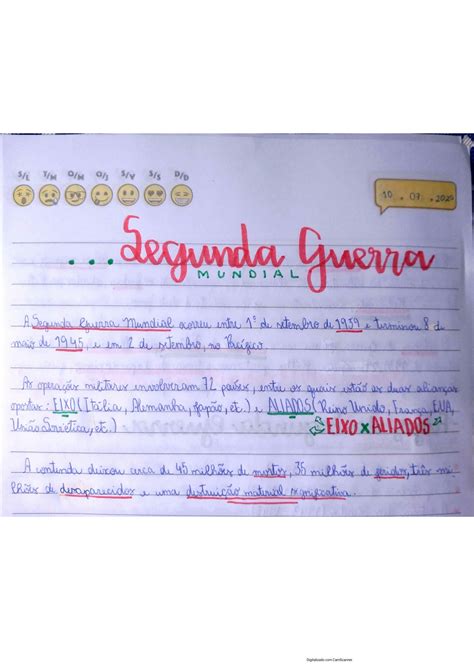 S/E T/M Q/M Q/J S/V S/S D/D
10 . 07 . 2020
...Segunda Guerra
MUNDIAL
A Segunda Guerra Mundial ocorreu entre 1º de setembro de 1939 e terminou 8 de
maio de 1945, e em 2 de setembro, no Pacífico.
As operações militares envolveram 72 países, entre os quais estão as duas alianças
opostas: EIXO (Itália, Alemanha, Japão, etc.) e ALIADOS (Reino Unido, França, EUA,
União Soviética, etc.)
EIXO x ALIADOS
A contenda deixou cerca de 45 milhões de mortos, 35 milhões de feridos, três mi-
lhões de desaparecidos e uma destruição material significativa.
Digitalizado com CamScanner